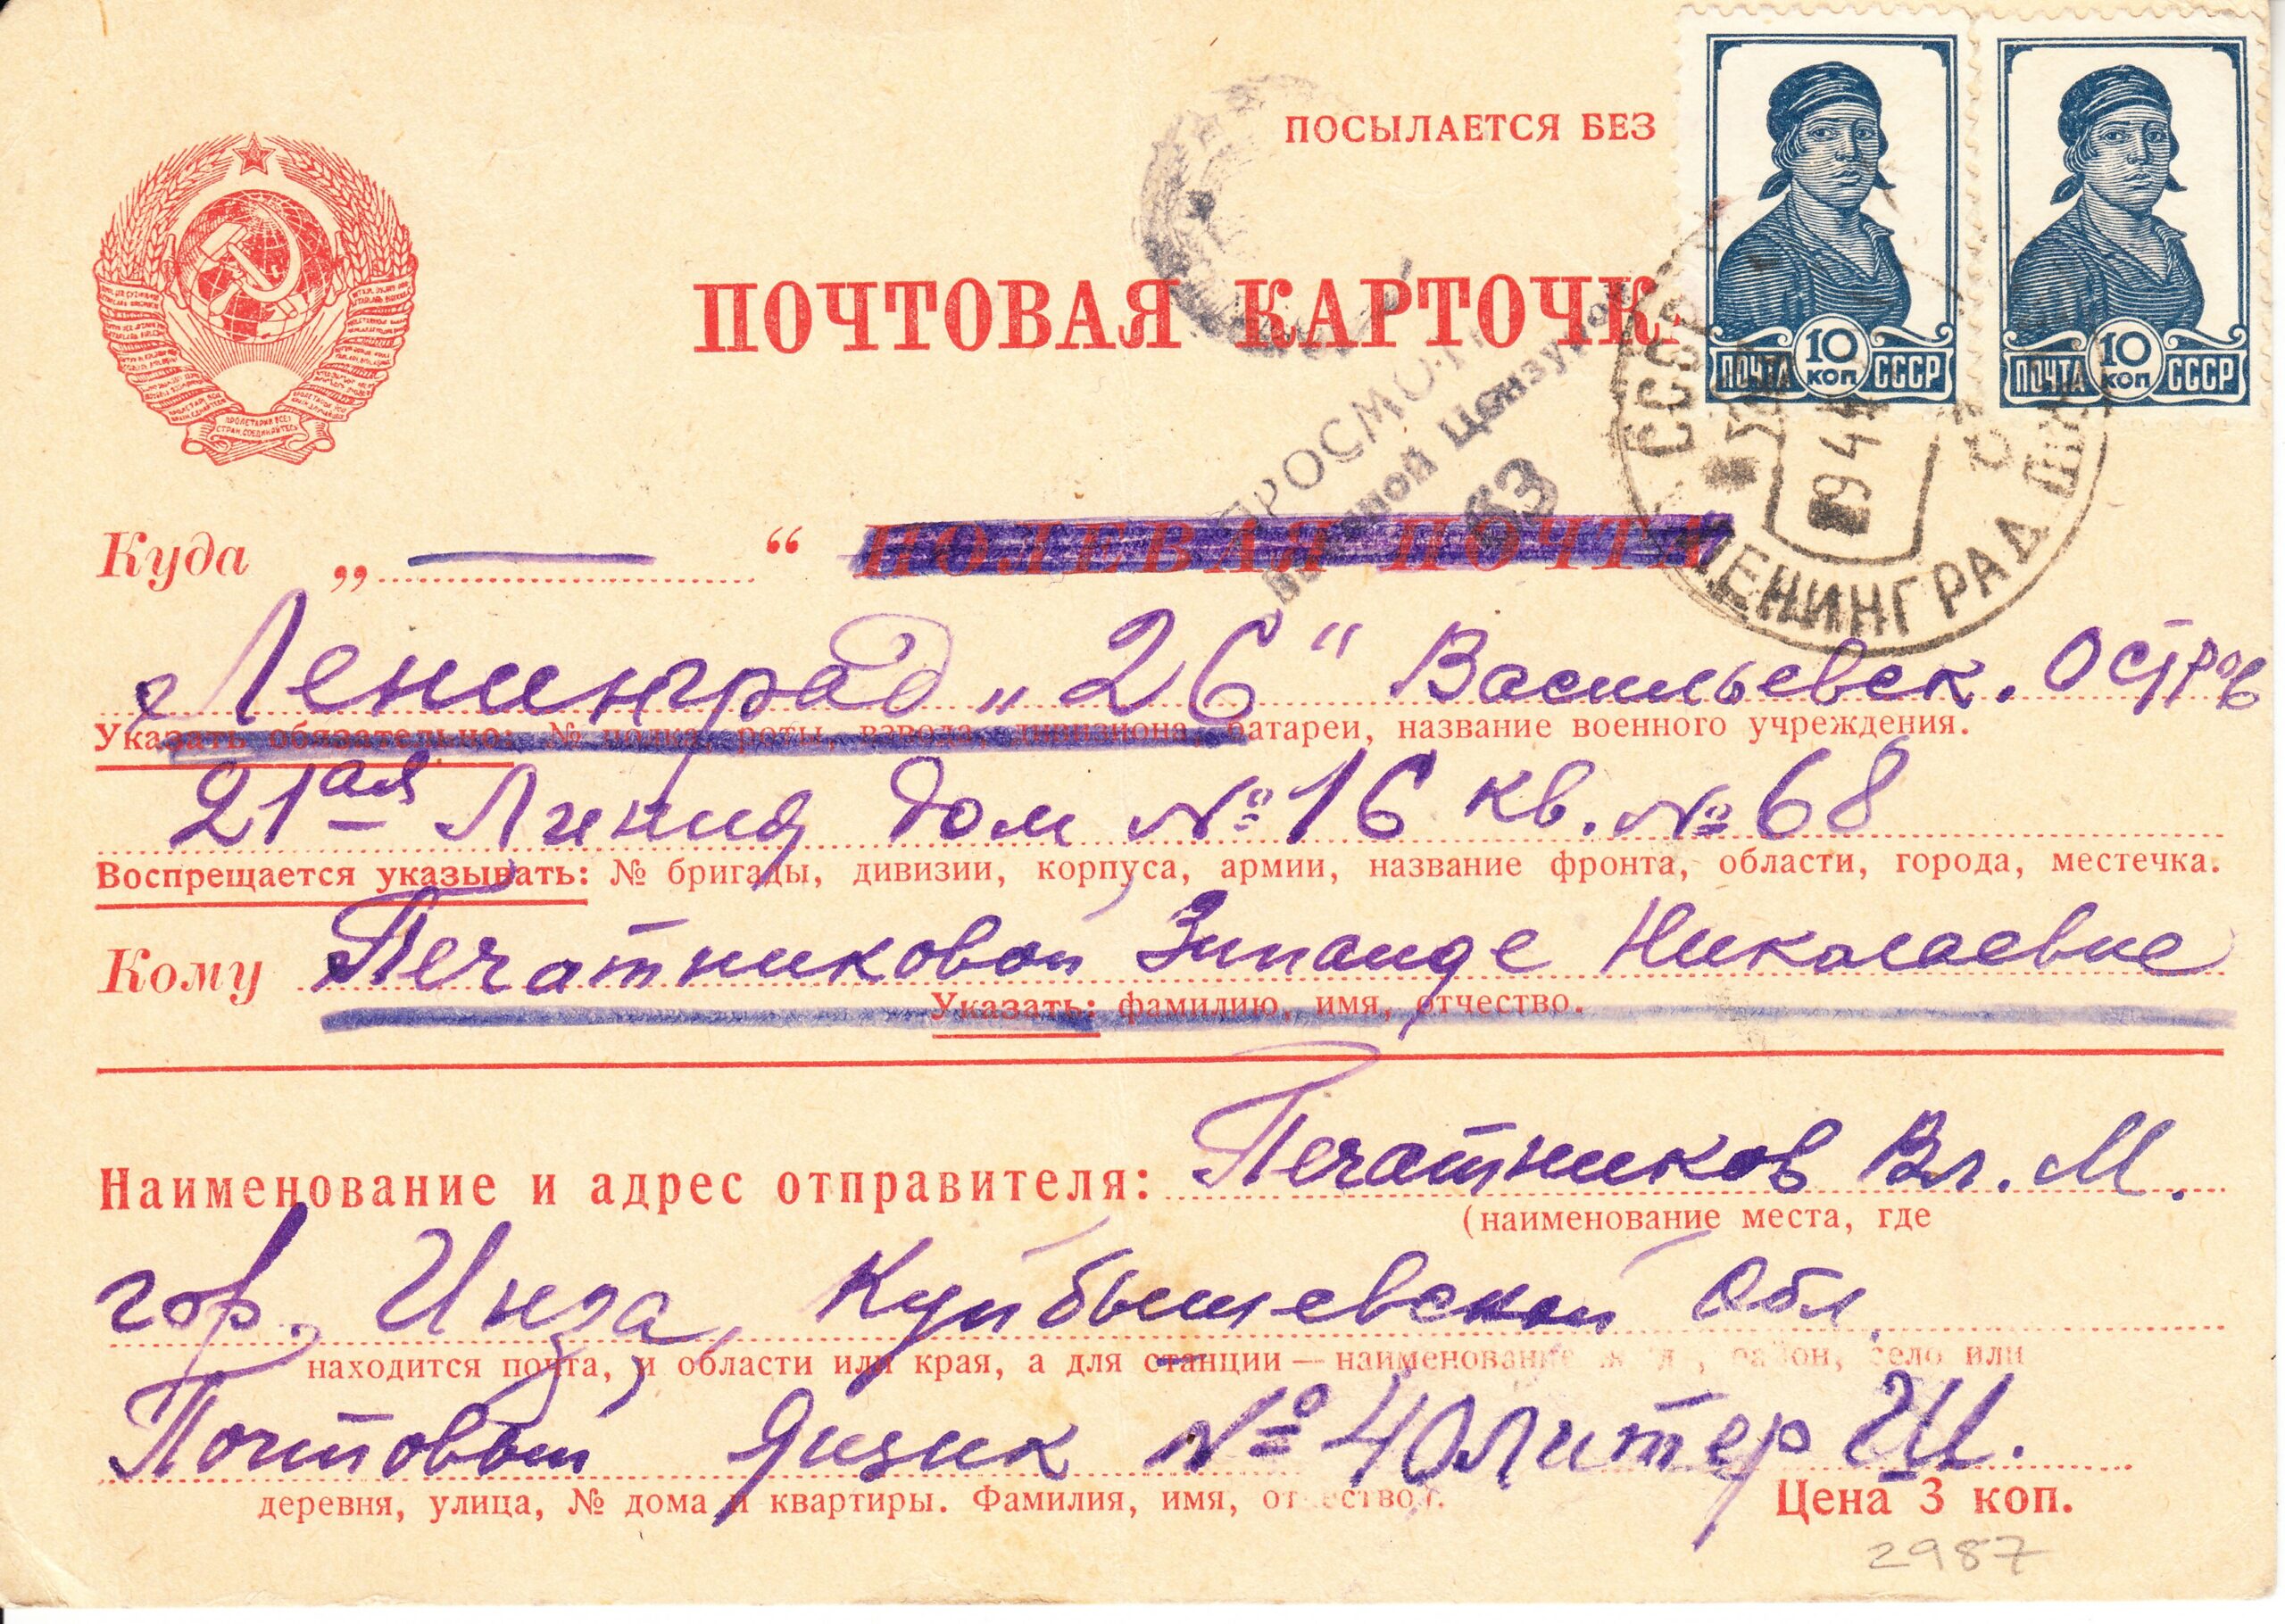 ПОСЫЛАЕТСЯ БЕЗ
ПОЧТОВАЯ КАРТОЧК
ПОЧТА 10 КОП СССР
ПОЧТА 10 КОП СССР
ПРОЛЕТАРИИ ВСЕХ
СТРАН, СОЕДИНЯЙТЕСЬ
Цензурой
63
СССР
9 4 44
ЛЕНИНГРАД
Куда „ “ ПОЛЕВАЯ ПОЧТА
Ленинград „26“ Васильевск. Остров
Указать обязательно: № полка, роты, взвода, дивизиона, батареи, название военного учреждения.
21ая Линия дом №16 кв. №68
Воспрещается указывать: № бригады, дивизии, корпуса, армии, название фронта, области, города, местечка.
Кому Печатниковой Зинаиде Николаевне
Указать: фамилию, имя, отчество.
Наименование и адрес отправителя: Печатников Вл. М.
(наименование места, где
гор. Инза, Куйбышевской Обл.
находится почта, и области или края, а для станции — наименование район, село или
Почтовый Ящик №40 Литер Ш.
деревня, улица, № дома и квартиры. Фамилия, имя, отчество).
Цена 3 коп.
2987